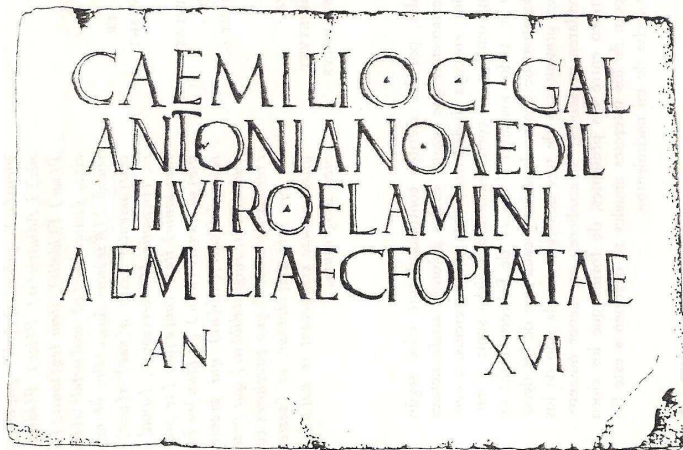 CAEMILIO CFGAL
ANTONIANOAEDIL
IIVIROFLAMINI
AEMILIAECFOPTATAE
AN XVI